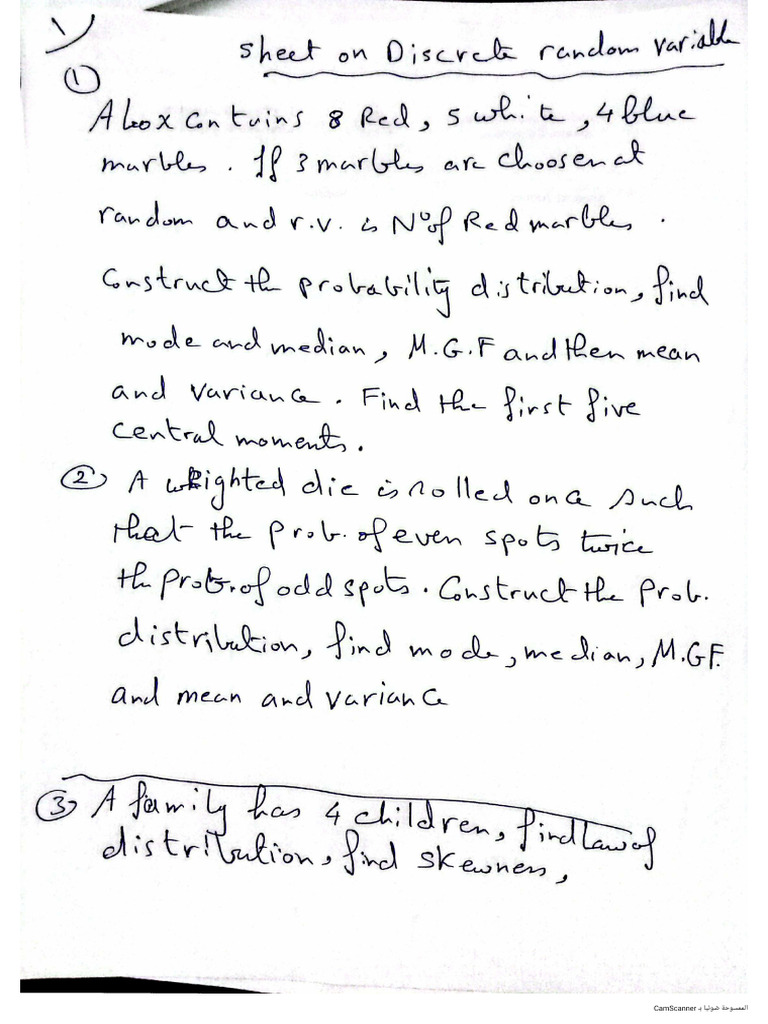 ١
Sheet on Discrete random variable
①
A box contains 8 Red, 5 white, 4 blue
marbles. If 3 marbles are choosen at
random and r.v. is Nº of Red marbles.
Construct the probability distribution, find
mode and median, M.G.F and then mean
and variance. Find the first five
central moments.
② A weighted die is rolled once such
that the prob. of even spots twice
the prob. of odd spots. Construct the prob.
distribution, find mode, median, M.GF.
and mean and variance
③ A family has 4 children, find law of
distribution, find skewness,
الممسوحة ضوئيا بـ CamScanner